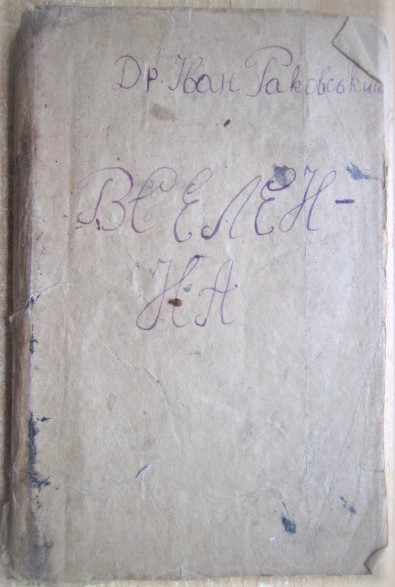 Др. Іван Раковський
ВСЕЛЕН-
НА